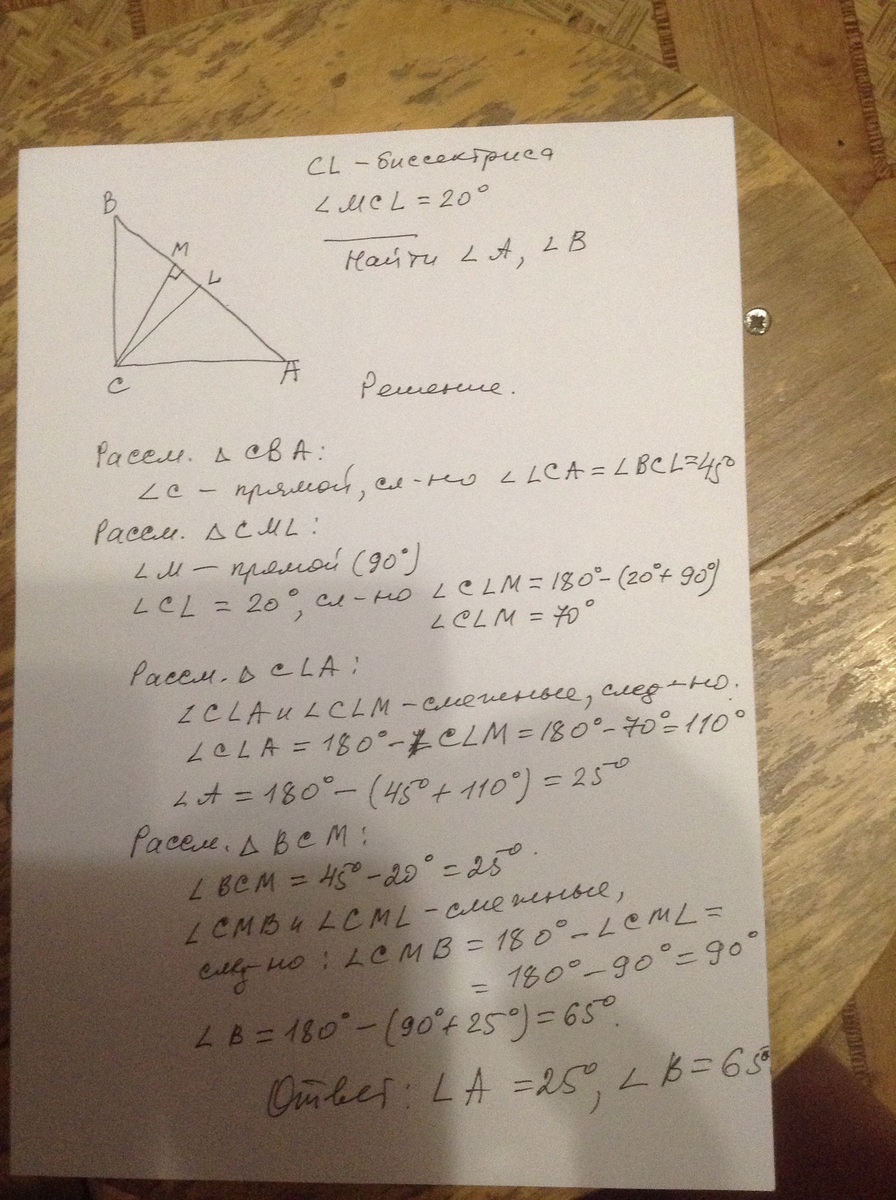 CL – биссектриса
∠MCL = 20°
Найти ∠A, ∠B
B
M
L
C
A
Решение.
Рассм. △ CBA:
∠C – прямой, сл-но ∠LCA = ∠BCL = 45°
Рассм. △ CML:
∠M – прямой (90°)
∠CL = 20°, сл-но ∠CLM = 180° - (20° + 90°)
∠CLM = 70°
Рассм. △ CLA:
∠CLA и ∠CLM – смежные, след-но:
∠CLA = 180° - ∠CLM = 180° - 70° = 110°
∠A = 180° – (45° + 110°) = 25°
Рассм. △ BCM:
∠BCM = 45° - 20° = 25°.
∠CMB и ∠CML – смежные,
след-но: ∠CMB = 180° - ∠CML =
= 180° - 90° = 90°
∠B = 180° - (90° + 25°) = 65°.
Ответ: ∠A = 25°, ∠B = 65°